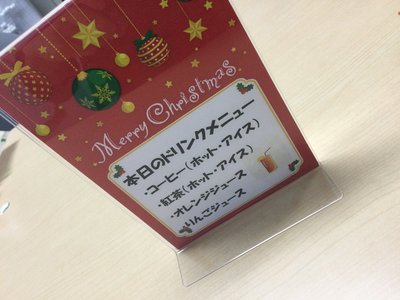 Merry Christmas
本日のドリンクメニュー
・コーヒー(ホット・アイス)
・紅茶(ホット・アイス)
・オレンジジュース
・りんごジュース